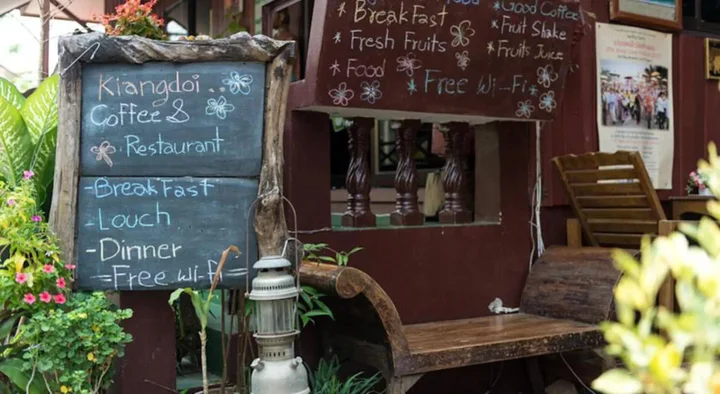 Kiangdoi..
Coffee &
Restaurant
-BreakFast
-Louch
-Dinner
=Free Wi-F
*BreakFast
*Fresh Fruits
*Food
*Free Wi-Fi*
*Good Coffee
*Fruit Shake
*Fruits Juice